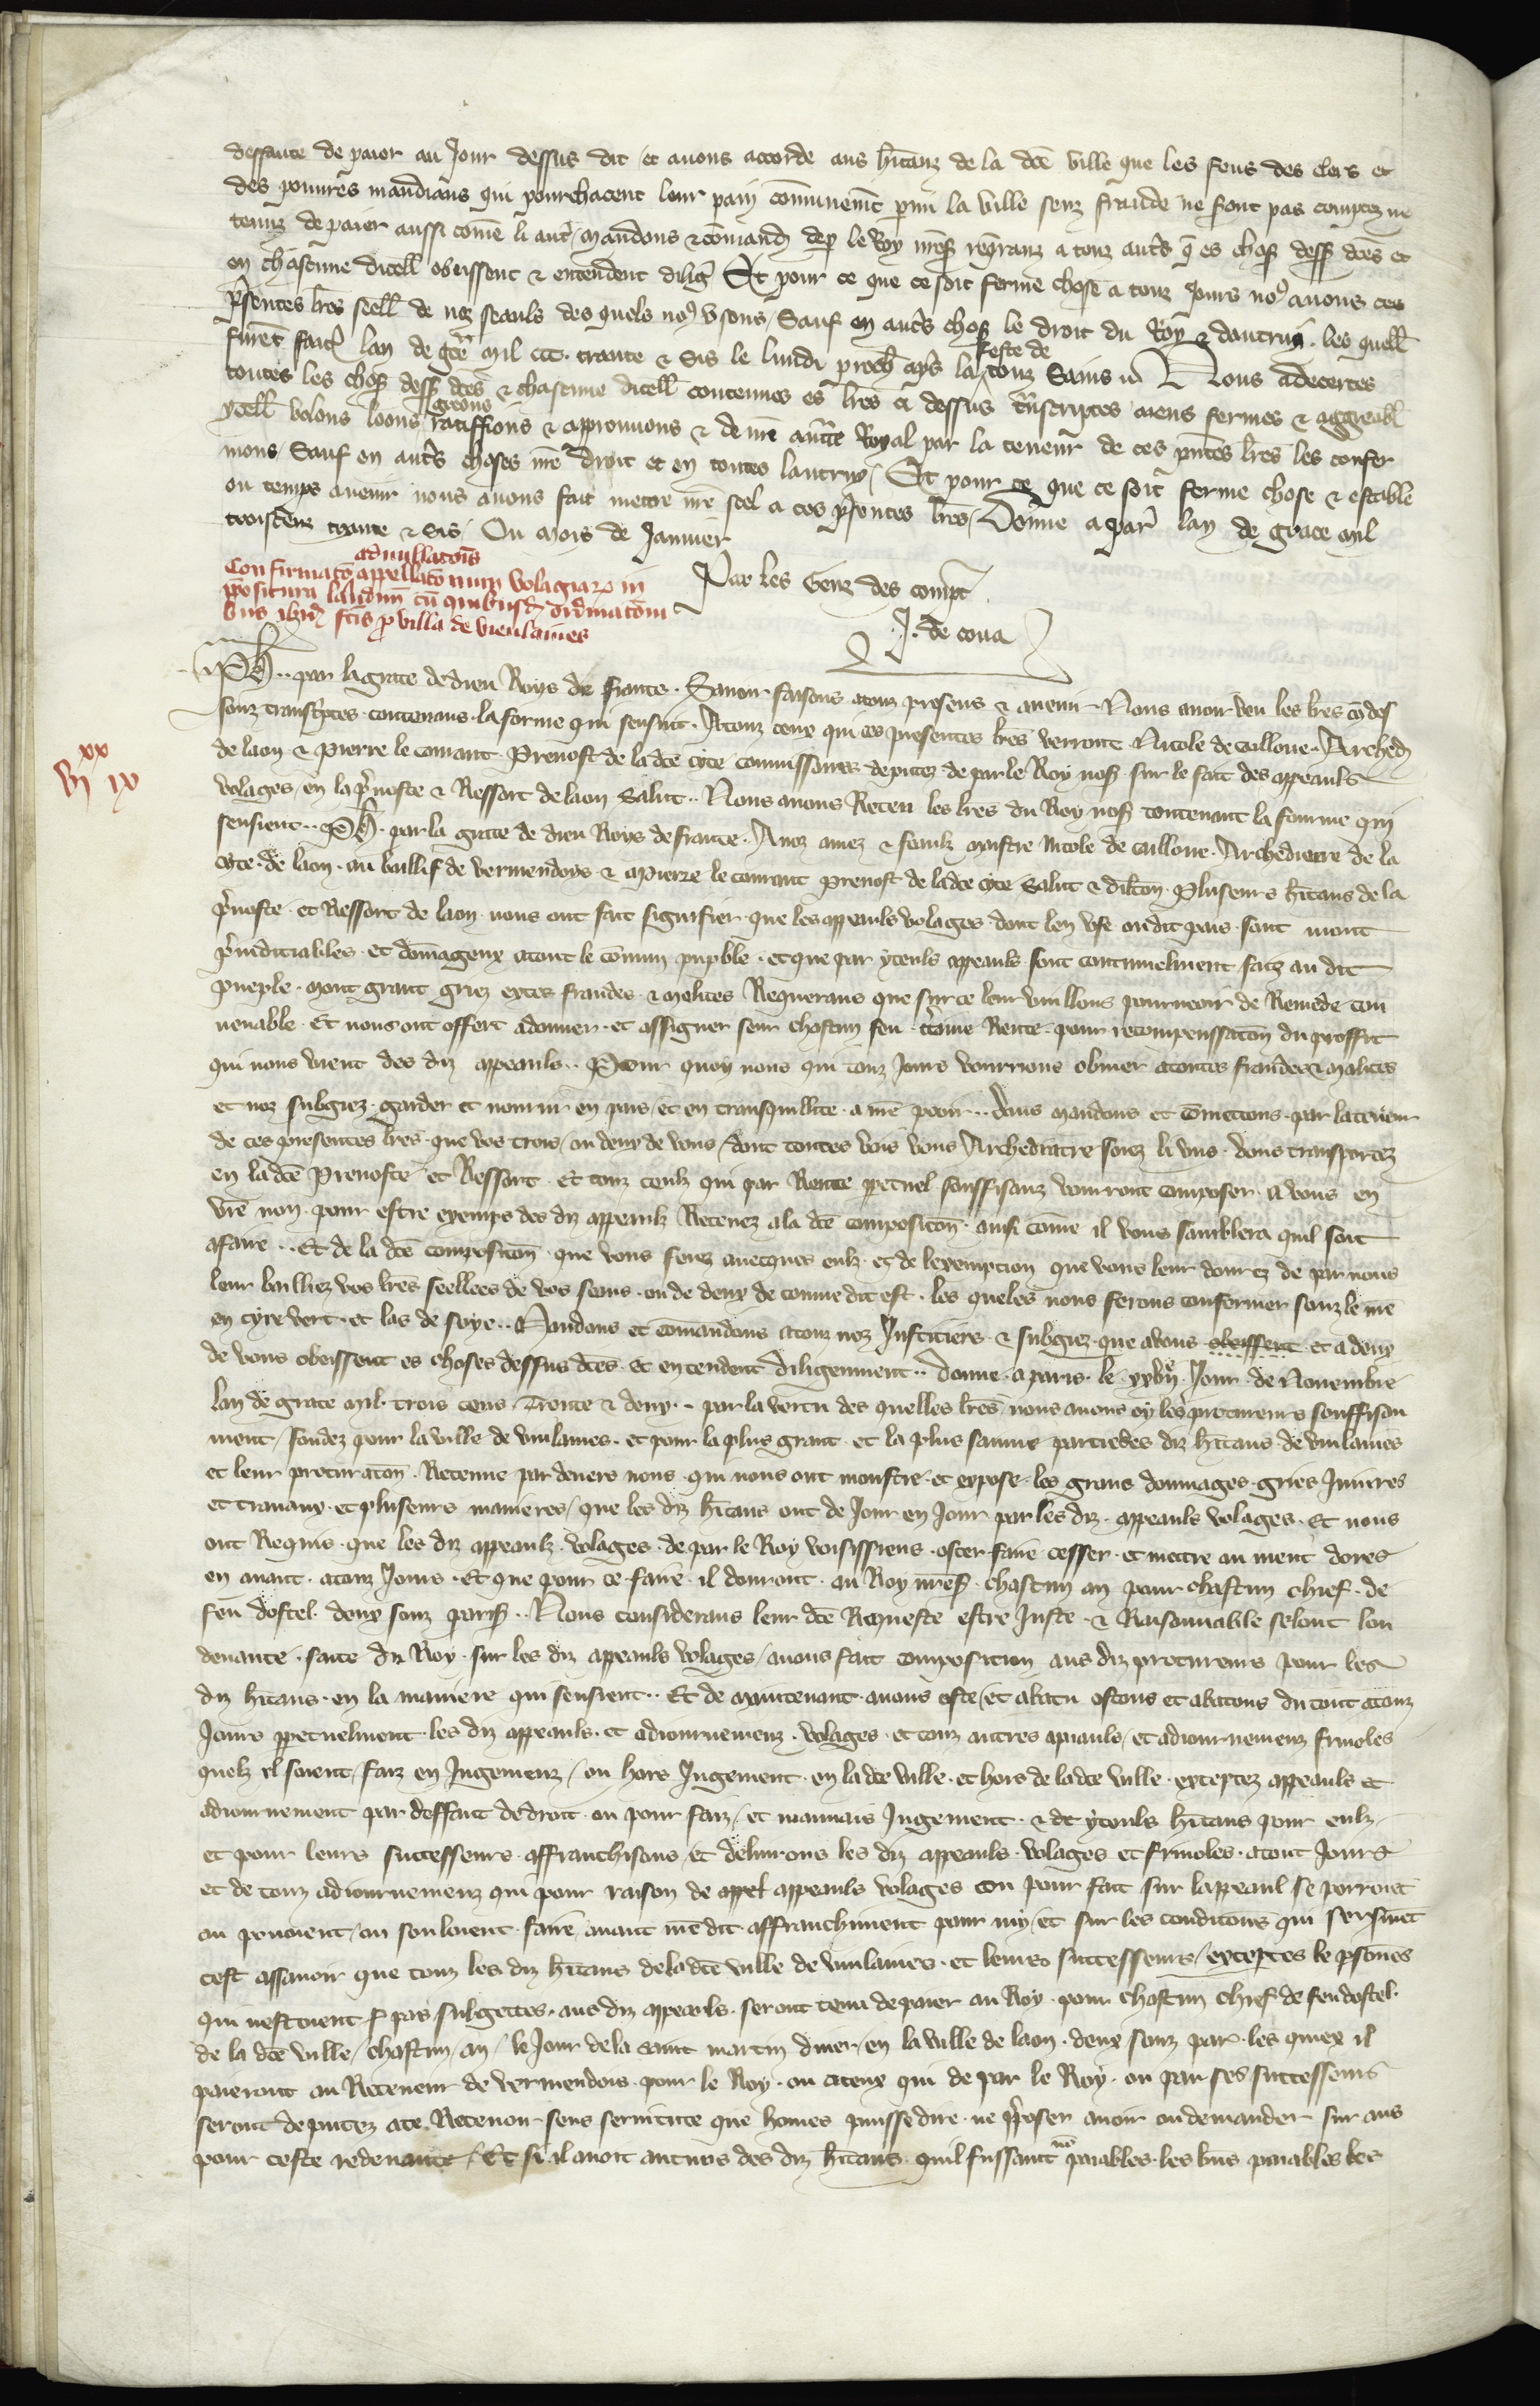 deffaute de paier au Jour dessus dit / et auons accorde aus hitanz de la dce ville que les feus des clers et
des poures mandians qui pourchacent leur pain communemt parmi la ville senz fraude ne sont pas comptez ne
tenuz de paier aussi come li autr / mandons & comand de p le Roy nres regranz a touz autrs q es chos dess dces et
en chascune dicell obeissent & entendent dilig Et pour ce que ce soit ferme chose a touz jours no auons ces
psentes lres seell de noz seauls des quels no vsons / Sauf en autrs chos le droit du Roy & dautruy . les quell
furet fait lan de gce mil ccc. trante & sis le lundi proch aps la feste de touz Sains Nous adecertes
toutes les chos dess dces & chascune dicell contenues es lres ci dessus transcriptes aiens fermes & aggreabl
ycell volons loons greons ratiffions & approuuons & de nre auctte Royal par la teneur de ces pntes lres les confer
mons / Sauf en autrs choses nre droit et en toutes lautruy / Et pour ce que ce soit ferme chose & estable
ou temps auenir nous auons fait mettre nre seel a ces psentes lres / Donne a par lan de grace mil
troiscenz trante & sis / Ou mois de Januier
Par les Genz des compt
J. de cona
Confirmato adnullatois appellatonum volagiar in
ppositura laudun cu quibusd ordinatoni
bus ibid fcis p villa de vieulaines
vi xx ix
Ph .. par la grace de dieu Roys de france . Sauoir faisons a touz presens & auenir Nous auoir veu les lres ci des
souz transcriptes contenans la forme qui sensuit . A touz ceux qui ces presentes lres verront Nicole de cailloue . Arched
de laon & Pierre le comant Preuost de la dce cyte commissaires deputez de par le Roy nos sur le fait des appeauls
volages / en la puoste & Ressort de laon Salut .. Nous auons Receu les lres du Roy nos contenant la fourme qui
sensient .. Ph . par la grace de dieu Roys de france . A noz amez & feaulz maistre Nicole de cailloue . Archediacre de la
cyte de laon . au baillif de vermendoys & a Pierre le comant Preuost de la dce cyte Salut & dilcton . Pluseurs hitans de la
puoste et Ressort de laon nous ont fait signifier que les appeauls volages dont len vse ou dit pais sont mout
piudiciables . et domageux a tout le commun pupble . et que par yceuls appeauls sont continuelment faiz au dit
pueple . mout grant griez exces fraudes & malices Requerans que sur ce leur vuillons pourueoir de Remede con
uenable . Et nous ont offert a donner et assigner seur chascun feu certaine Rente pour recompenssacon du proffit
qui nous vient des diz appeauls .. Pour quoy nous qui touz Jours vourrions obuier a toutes fraudes & malices
et noz subgiez . garder et nourrir en pais / et en transquillite a nre pooir .. Vous mandons et comettons par la teneur
de ces presentes lres . que vos trois / ou deux de vous / dont toutes vois vous Archediacre soiez li uns . vous transportez
en la dce Preuoste et Ressort . Et touz ceulz qui par Rente ppetuel souffisanz vourront composer a vous en
nre non pour estre exemps des diz appeaulz Receuez a la dce composicon . ausi come il vous samblera quil soit
a faire .. Et de la dce composicon que vous ferez auecques eulz et de lexempcion que vous leur donrez de par nous
leur bailliez vos lres seellees de vos seaus . ou de deux de comme dit est . les queles nous ferons confermer souz le nre
en cyre vert . et las de soye .. Mandons et comandons a touz noz Justiciers & subgiez que a vous obeissent et a deux
de vous obeissent es choses dessus dces et entendent diligenment .. Donne a paris . le xxvije Jour de Nouembre
lan de grace mil . trois cens Trente & deux .. par la vertu des quelles lres nous auons oy les procureurs souffisan
ment / fondez pour la ville de vieulaines . et pour la plus grant et la plus sainne partie des diz hitans de vieulaines
et leur procuracon . Retenue par deuers nous . qui nous ont monstre et expose les grans dommages gries Iniures
et trauaux . et pluseurs manieres / que les diz hitans ont de Jour en Jour par les diz appeauls volages . Et nous
ont Requis que les diz appeaulz volages de par le Roy vousissiens oster faire cesser et mettre au nient dores
en auant a touz Jours . Et que pour ce faire il donront au Roy nres chascun an pour chascun chief de
feu dostel deux souz paris .. Nous considerans leur dce Requeste estre Juste & Raisonnable selont lou
denance . faite du Roy . sur les diz appeauls volages / auons fait composicion aus diz procureurs pour les
diz hitans en la maniere qui sensient .. Et de maintenant auons oste / et abatu ostons et abatons du tout a touz
Jours ppetuelment les diz appeauls . et adiournemenz volages . et touz autres apiauls / et adiournemenz friuoles
quelz il soient / faiz en Jugemenz / ou hors Jugement en la dce ville . et hors de la dce ville exceptez appeauls et
adiournement par deffaut de droit ou pour faus / et mauuais Jugement . & de yceuls hitans pour eulz
et pour leurs successeurs affranchisons / et deliurons les diz appeauls volages et friuoles a tout Jours
et de touz adiournemenz qui pour raison de appel appeauls volages ou pour fait sur lappeaul se porront
ou peuoient / ou souloient faire auant nre dit affranchiment par my / et sur les conditions qui sensuiet
cest assauoir que touz les diz hitans de la dce ville de vieulaines . et leurs successeurs / exceptes le psones
qui nestoient pas subgettes aus diz appeauls seront tenu de paier au Roy pour chascun chief de feu dostel
de la dce ville / chascun an / le Jour de la saint martin diuer / en la ville de laon . deux souz par . les quiex il
paieront au Receueur de vermendois pour le Roy . ou a ceux qui de par le Roy . ou par ses successeurs
seront deputez a ce Receuoir sens seruitute que homes puisse dire . ne pposer auoir ou demander sur aus
pour ceste redeuance / Et se il auoit aucuns des diz hitans quil fussant non paiables . les bns paiables les